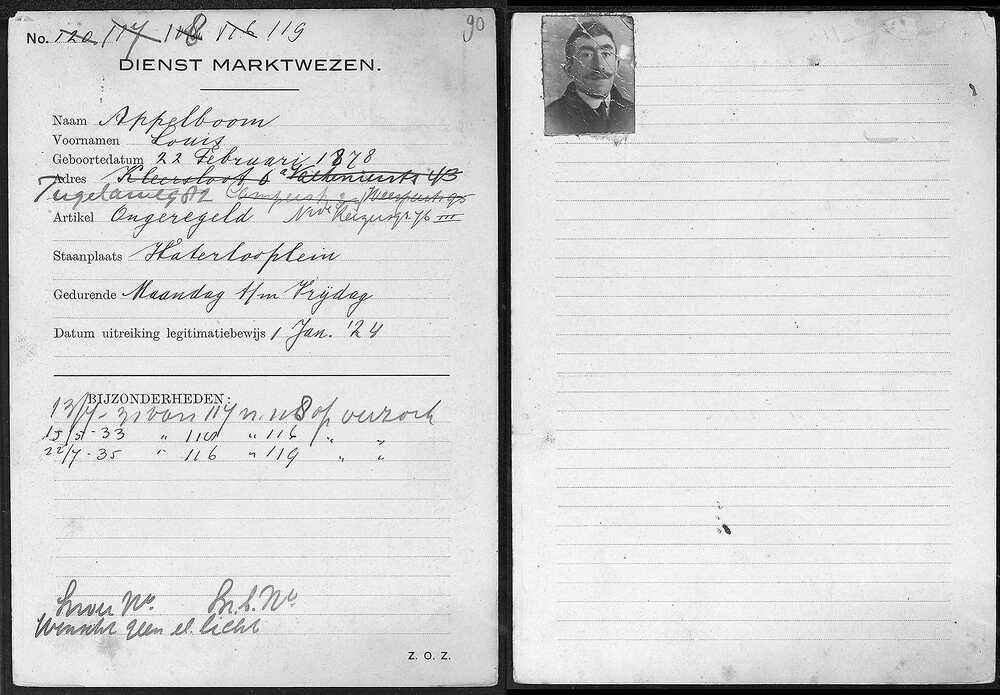 90
No. 120 117 118 116 119
DIENST MARKTWEZEN.
Naam Appelboom
Voornamen Louis
Geboortedatum 22 Februari 1878
Adres Kleersloot 6 Valkenierstr 43
Tugelaweg 82 Camperstr Weesperstr 95
Artikel Ongeregeld Nwe Keizersgr. 76 III
Staanplaats Waterlooplein
Gedurende Maandag t/m Vrijdag
Datum uitreiking legitimatiebewijs 1 Jan. '24
BIJZONDERHEDEN:
13/7-31 van 117 n. 118 op verzoek
15/5-33 " 118 " 116 " "
22/7-35 " 116 " 119 " "
No. No.
Wenscht geen el. licht
Z. O. Z.